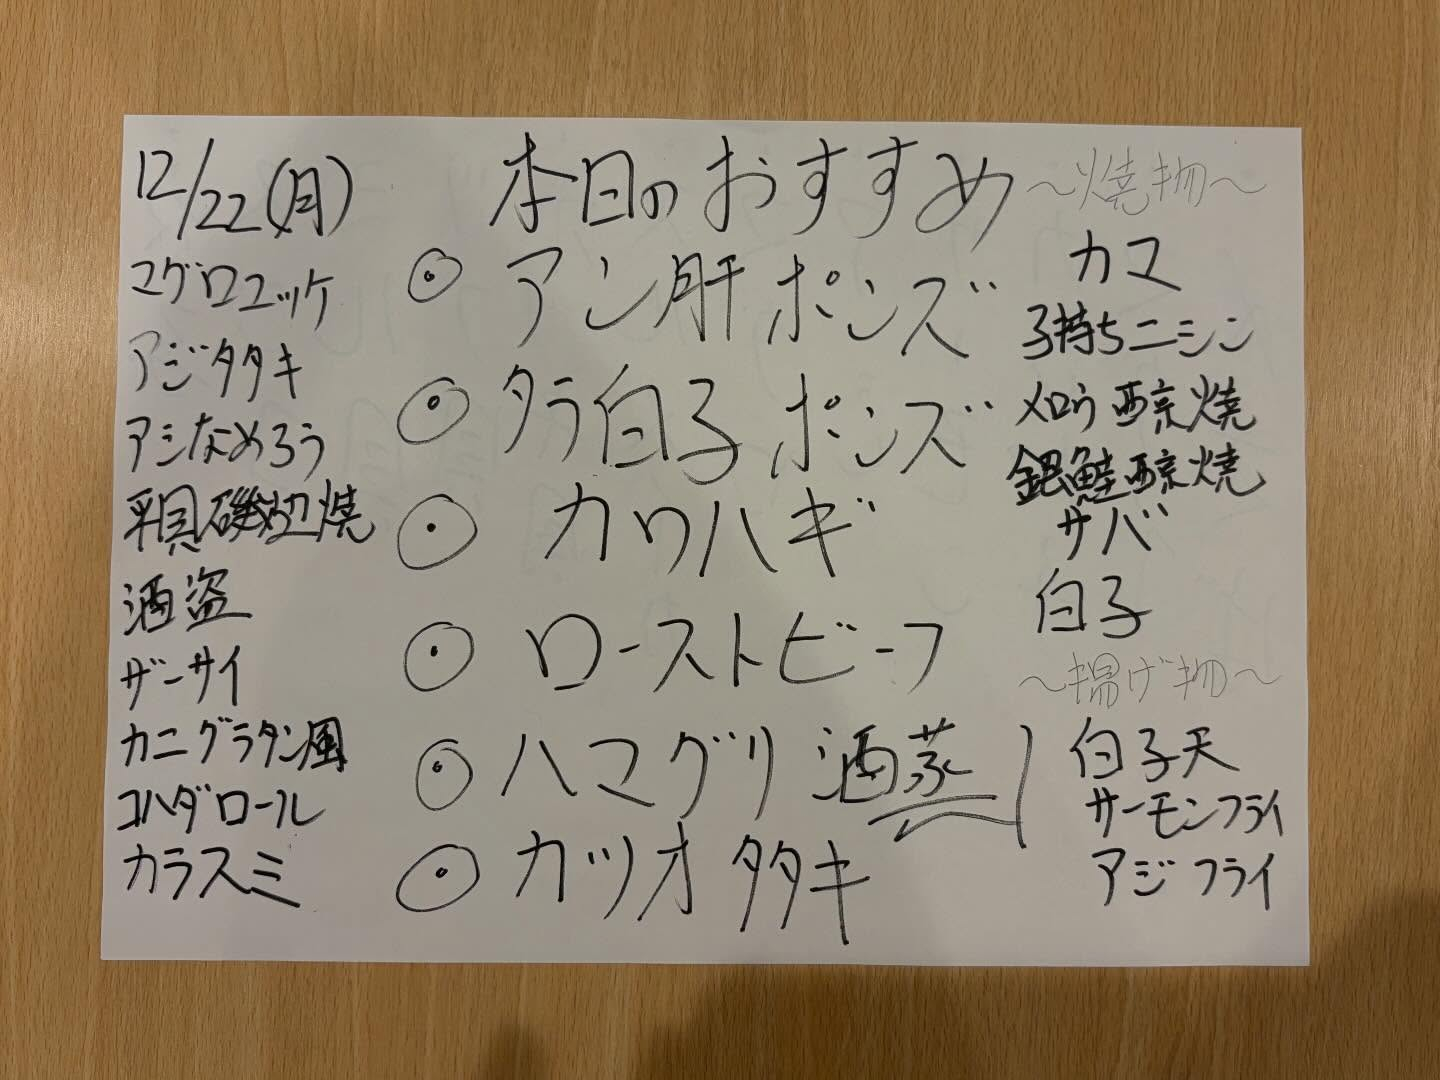 12/22(月)
マグロユッケ
アジタタキ
アジなめろう
平貝磯辺焼
酒盗
ザーサイ
カニグラタン風
コハダロール
カラスミ
本日のおすすめ
◉ アン肝ポンズ
◉ タラ白子ポンズ
◉ カワハギ
◉ ローストビーフ
◉ ハマグリ酒蒸
◉ カツオタタキ
〜焼物〜
カマ
子持ちニシン
メロウ西京焼
銀鮭西京焼
サバ
白子
〜揚げ物〜
白子天
サーモンフライ
アジフライ